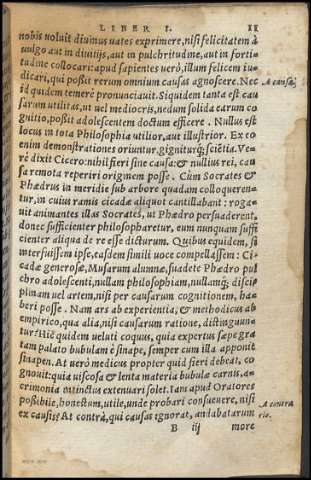 LIBER I. 11
nobis voluit diuinus uates exprimere, nisi felicitatem à
uulgo aut in diuitijs, aut in pulchritudine, aut in forti-
tudine collocari: apud sapientes uerò, illum felicem iu-
dicari, qui posset rerum omnium causas agnoscere. Nec A causa
id quidem temerè pronunciauit. Siquidem tanta est cau
sarum utilitas, ut uel mediocris, nedum solida earum co
gnitio, possit adolescentem doctum efficere. Nullus est
locus in tota Philosophia utilior, aut illustrior. Ex eo
enim demonstrationes oriuntur, gigniturq; sciẽtia. Ve-
rè dixit Cicero: nihil fieri sine causa: & nullius rei, cau
sa remota reperiri originem posse. Cùm Socrates &
Phædrus in meridie sub arbore quadam colloqueren-
tur, in cuius ramis cicadæ aliquot cantillabant: roga-
uit animantes illas Socrates, ut Phædro persuaderent,
donec sufficienter philosopharetur, eum nunquam suffi
cienter aliqua de re esse dicturum. Quibus equidem, si
interfuissem ipse, easdem simili uoce compellassem: Ci-
cadæ generosæ, Musarum alumnæ, suadete Phædro pul
chro adolescenti, nullam philosophiam, nullamq; disci
plinam uel artem, nisi per causarum cognitionem, ha-
beri posse. Nam ars ab experientia, & methodicus ab
empirico, qua alia, nisi causarum ratione, distinguun-
tur? Hic quidem ueluti coquus, quia expertus sæpe gra
tam palato bubulam è sinape, semper cum illa apponit
sinapen. At uerò medicus propter quid fieri debeat, co
gnouit: quia uiscosa & lenta materia bubulæ carnis, a-
crimonia extinctus extenuari solet. Iam apud Oratores
possibile, honestum, utile, unde probari consueuere, nisi
ex causis? At contrà, qui causas ignorat, andabatarum A contra
rio.
B iij more